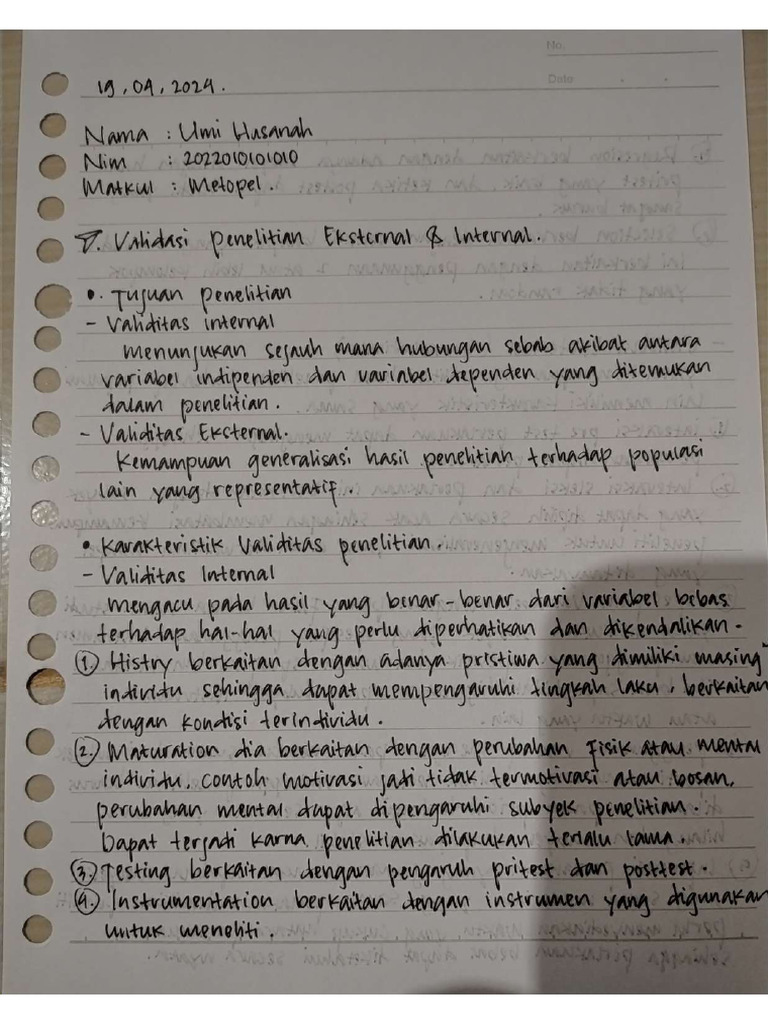 No.
Date
19, 04, 2024.
Nama : Umi Husanah
Nim : 2022010101010
Matkul : Metopel.
Validasi Penelitian Eksternal & Internal.
• Tujuan penelitian
- Validitas internal
menunjukan sejauh mana hubungan sebab akibat antara
variabel indipenden dan variabel dependen yang ditemukan
dalam penelitian.
- Validitas Eksternal.
Kemampuan generalisasi hasil penelitian terhadap populasi
lain yang representatif
• Karakteristik Validitas penelitian.
- Validitas Internal
mengacu pada hasil yang benar-benar dari variabel bebas
terhadap hal-hal yang perlu diperhatikan dan dikendalikan.
1. Histry berkaitan dengan adanya pristiwa yang dimiliki masing"
individu sehingga dapat mempengaruhi tingkah laku, berkaitan
dengan kondisi terindividu.
2. Maturation dia berkaitan dengan perubahan fisik atau mental
individu, contoh motivasi jadi tidak termotivasi atau bosan,
perubahan mental dapat dipengaruhi subyek penelitian.
Dapat terjadi karna penelitian dilakukan terlalu lama.
3. Testing berkaitan dengan pengaruh pritest dan posttest.
4. Instrumentation berkaitan dengan instrumen yang digunakan
untuk meneliti.